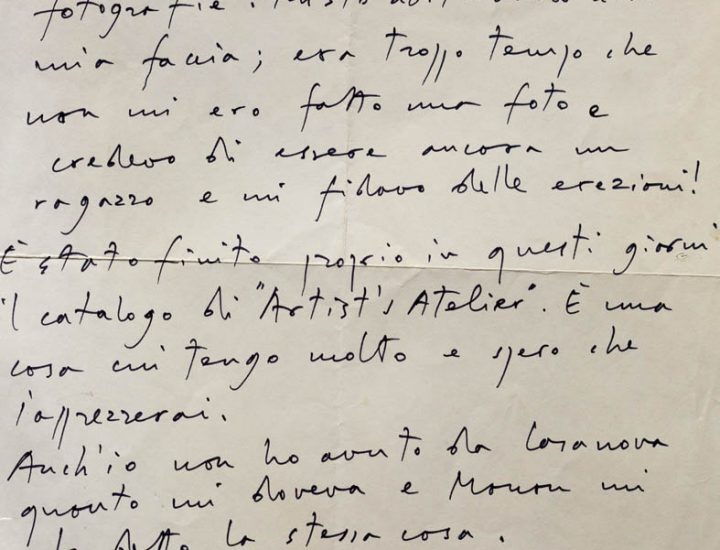 fotografie.
mia faccia; era troppo tempo che
non mi ero fatto una foto e
credevo di essere ancora un
ragazzo e mi fidavo delle erezioni!
È stato finito proprio in questi giorni
il catalogo di "Artist's Atelier". È una
cosa cui tengo molto e spero che
l'apprezzerai.
Anch'io non ho avuto da Casanova
quanto mi doveva e Monon mi
ha detto la stessa cosa.